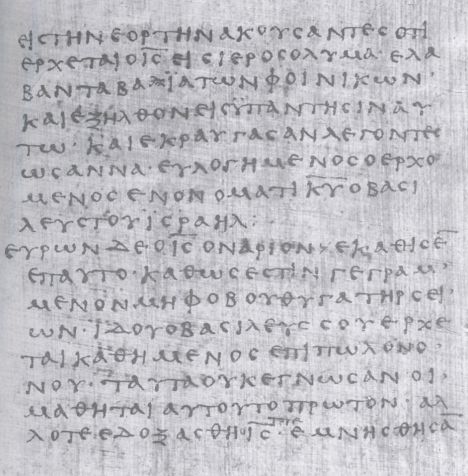 ΕΙϹΤΗΝΕΟΡΤΗΝΑΚΟΥϹΑΝΤΕϹΟΤΙ
ΕΡΧΕΤΑΙΟΙ̅Ϲ̅ΕΙϹΙΕΡΟϹΟΛΥΜΑ·ΕΛΑ
ΒΑΝΤΑΒΑΪΑΤΩΝΦΟΙΝΙΚΩΝ·
ΚΑΙΕΞΗΛΘΟΝΕΙϹΫΠΑΝΤΗϹΙΝΑΥ
ΤΩ·ΚΑΙΕΚΡΑΥΓΑϹΑΝΛΕΓΟΝΤΕϹ
ΩϹΑΝΝΑ·ΕΥΛΟΓΗΜΕΝΟϹΟΕΡΧΟ
ΜΕΝΟϹΕΝΟΝΟΜΑΤΙΚ̅Υ̅ΟΒΑϹΙ
ΛΕΥϹΤΟΥΙϹΡΑΗΛ:
ΕΥΡΩΝΔΕΟΙ̅Ϲ̅ΟΝΑΡΙΟΝ·ΕΚΑΘΙϹΕ̅
ΕΠΑΥΤΟ·ΚΑΘΩϹΕϹΤΙΝΓΕΓΡΑΜ·
ΜΕΝΟΝΜΗΦΟΒΟΥΘΥΓΑΤΗΡϹΕΙ·
ΩΝ·ΙΔΟΥΟΒΑϹΙΛΕΥϹϹΟΥΕΡΧΕ
ΤΑΙΚΑΘΗΜΕΝΟϹΕΠΙΠΩΛΟΝΟ·
ΝΟΥ·ΤΑΥΤΑΟΥΚΕΓΝΩϹΑΝΟΙ·
ΜΑΘΗΤΑΙΑΥΤΟΥΤΟΠΡΩΤΟΝ·ΑΛ
ΛΟΤΕΕΔΟΞΑϹΘΗΙ̅Ϲ̅·ΕΜΝΗϹΘΗϹΑ̅